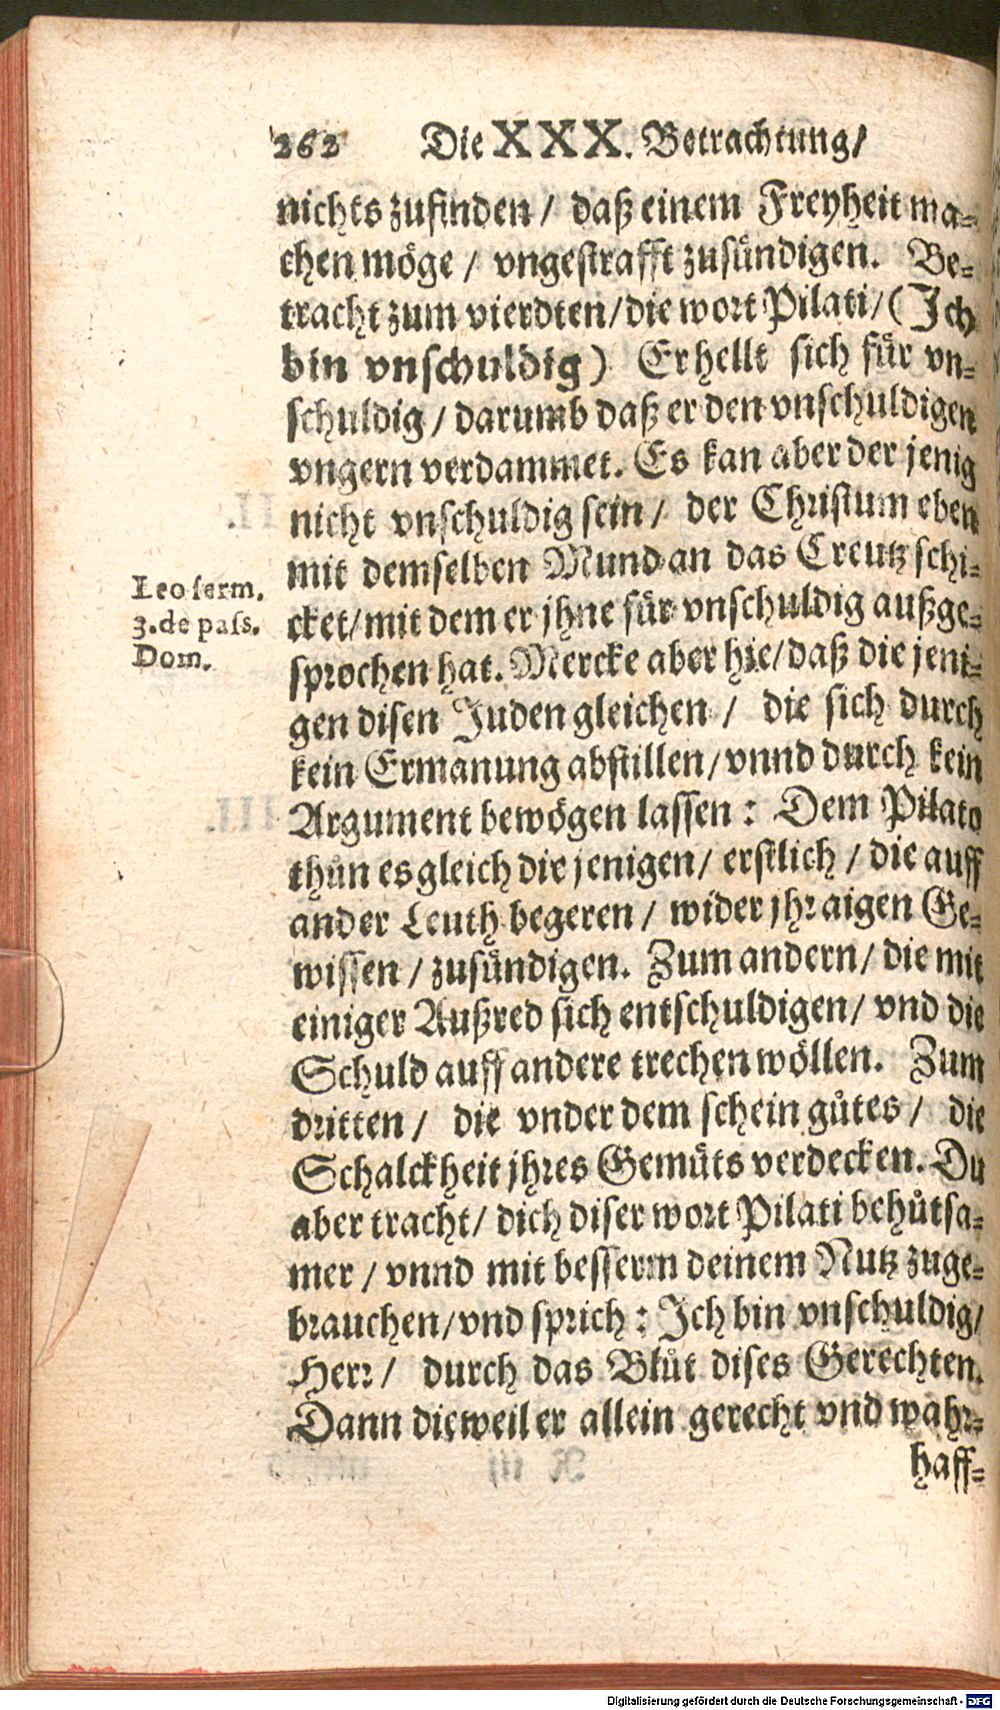 262 Die XXX. Betrachtung/
nichts zufinden / daß einem Freyheit ma-
chen möge / vngestrafft zusündigen. Be-
tracht zum vierdten/die wort Pilati/(Ich
bin vnschuldig) Er hellt sich für vn-
schuldig / darumb daß er den vnschuldigen
vngern verdammet. Es kan aber der jenig
nicht vnschuldig sein / der Christum eben
mit demselben Mund an das Creutz schi-
Leo serm.
3. de pass.
Dom.
cket/mit dem er jhne für vnschuldig außge-
sprochen hat. Mercke aber hie/daß die jeni-
gen disen Juden gleichen / die sich durch
kein Ermanung abstillen/vnnd durch kein
Argument bewögen lassen: Dem Pilato
thůn es gleich die jenigen/ erstlich / die auff
ander Leuth begeren / wider jhr aigen Ge-
wissen / zusündigen. Zum andern/ die mit
einiger Außred sich entschuldigen/ vnd die
Schuld auff andere trechen wöllen. Zum
dritten / die vnder dem schein gůtes / die
Schalckheit jhres Gemüts verdecken. Du
aber tracht/ dich diser wort Pilati behůtsa-
mer / vnnd mit besserm deinem Nutz zuge-
brauchen/vnd sprich: Ich bin vnschuldig/
Herr/ durch das Blůt dises Gerechten.
Dann dieweil er allein gerecht vnd wahr-
haff-
Digitalisierung gefördert durch die Deutsche Forschungsgemeinschaft - DFG